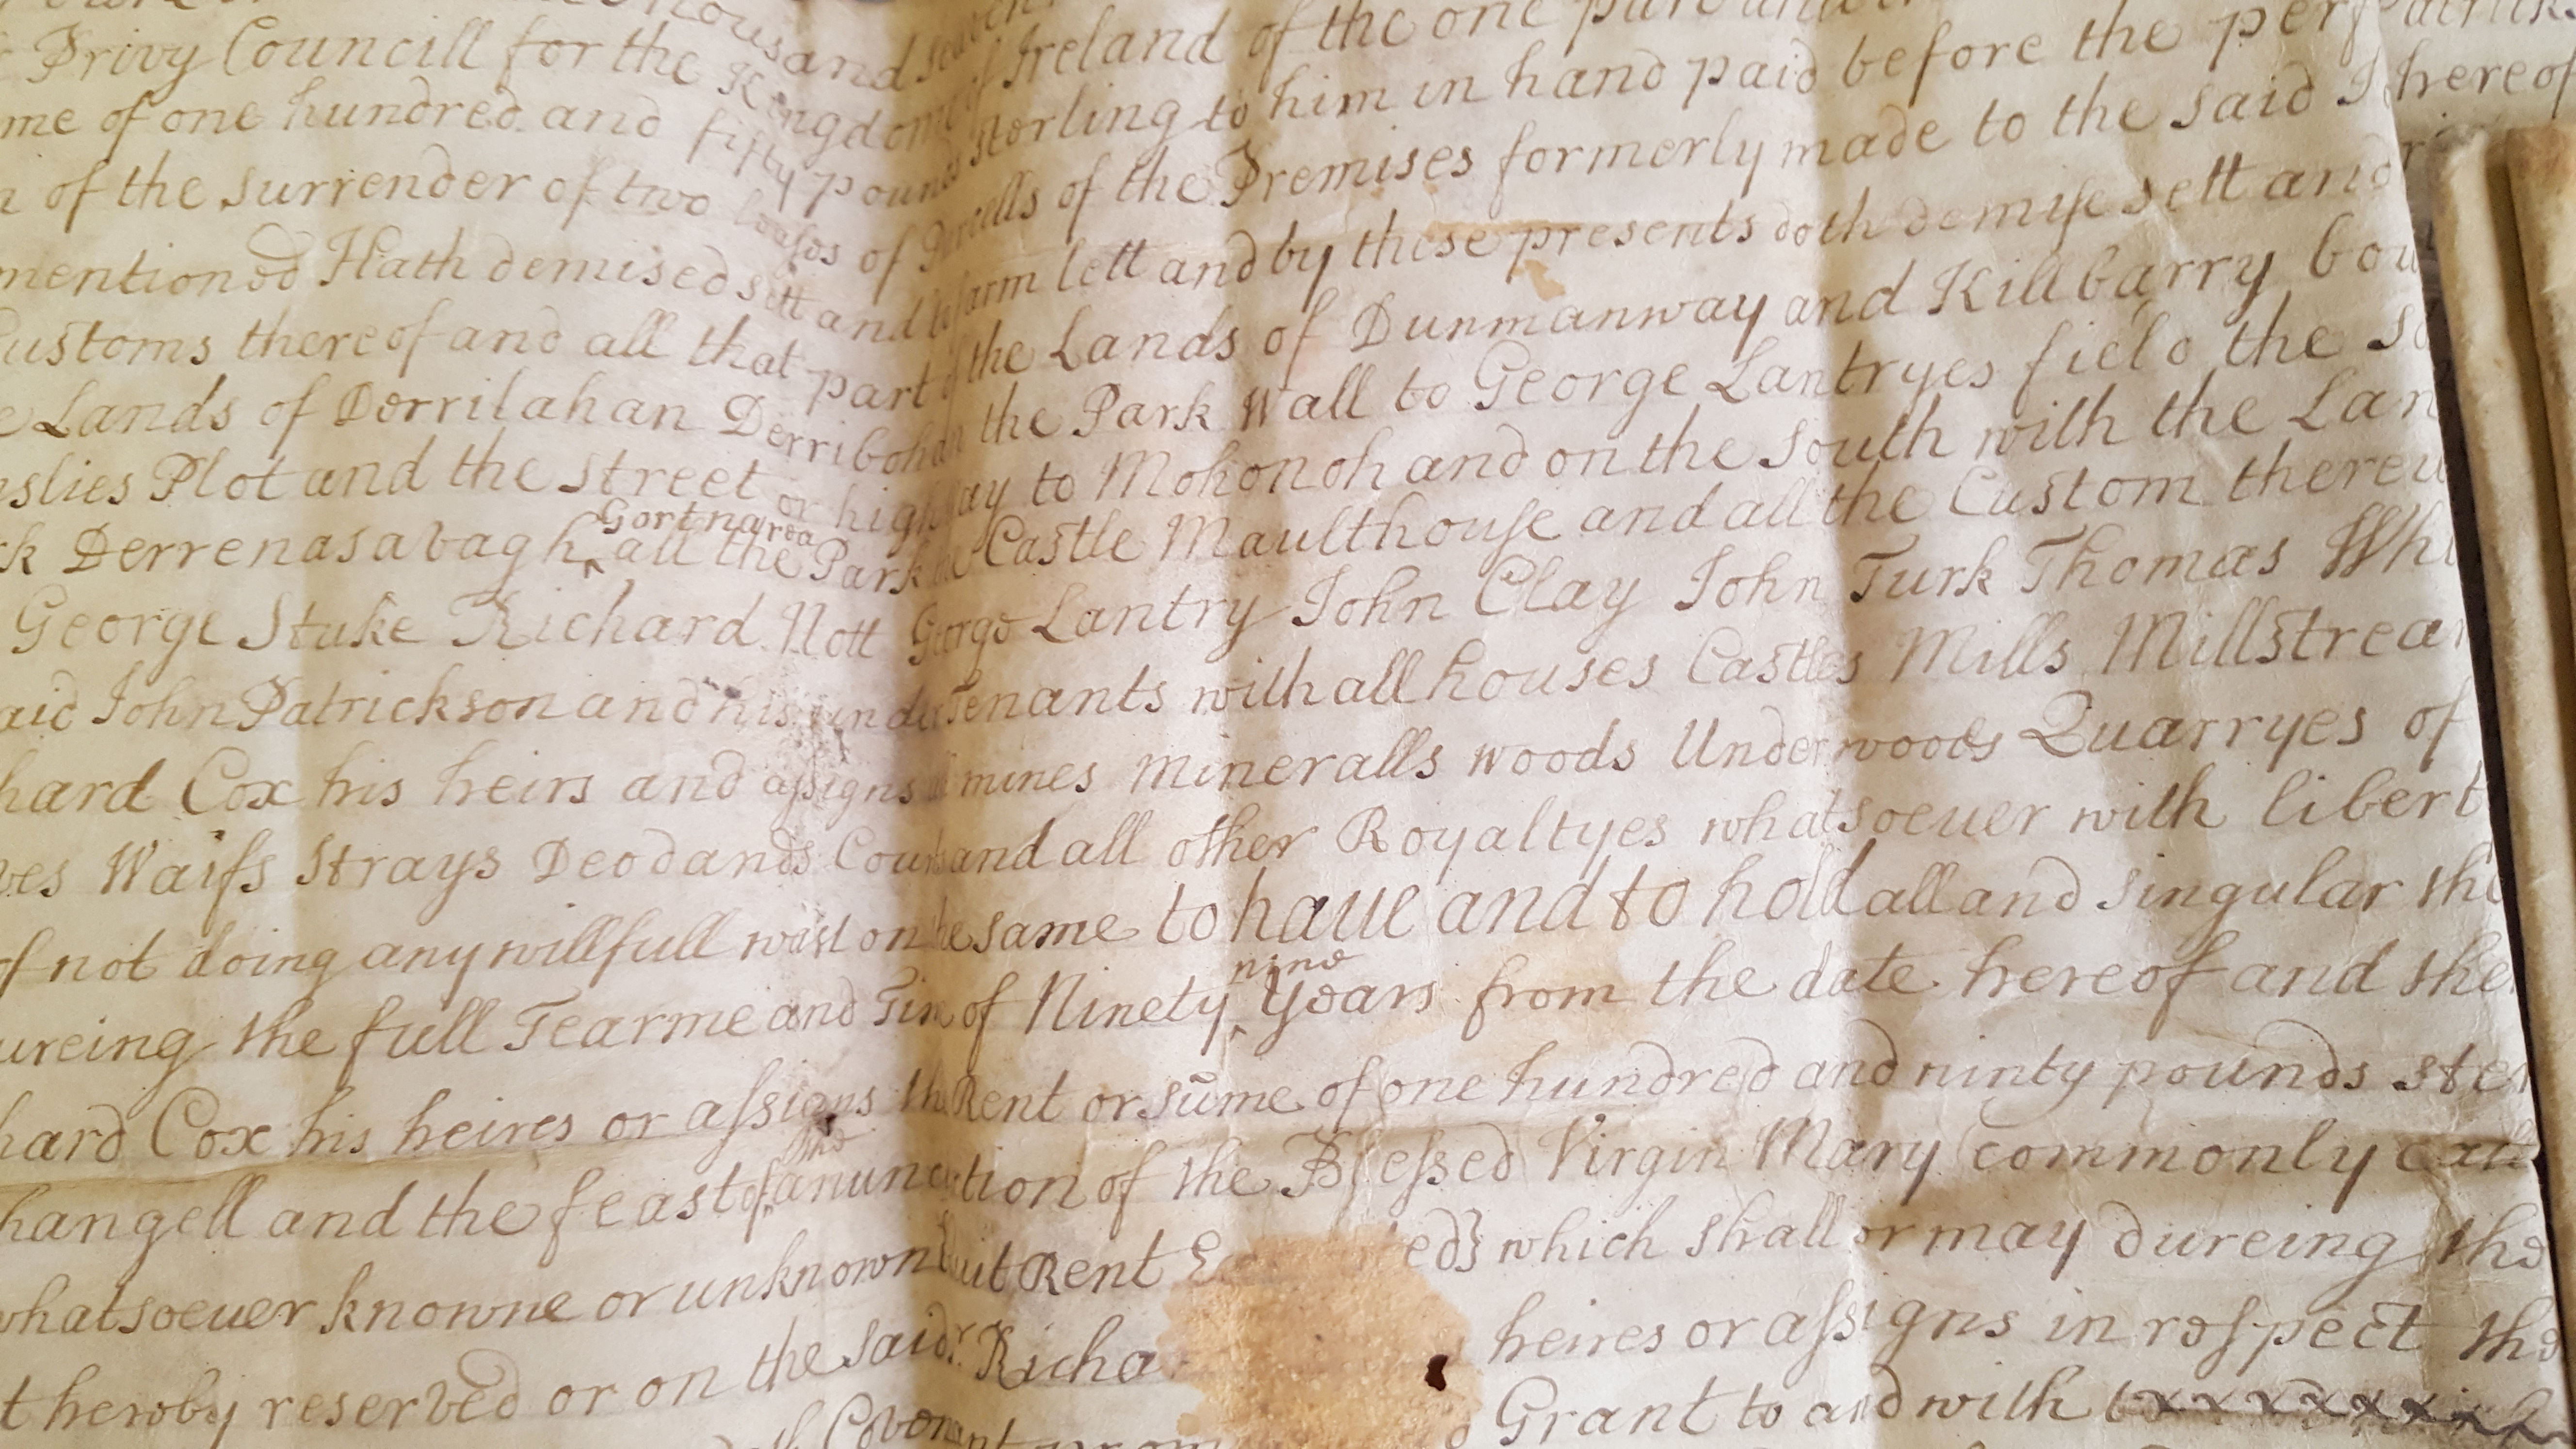 thousand
Privy Councill for the Kingdome of Ireland of the one part
me of one hundred and fifty pounds sterling to him in hand paid before the
n of the surrender of two leases of Parcells of the Premises formerly made to the said
mentioned Hath demised sett and to farm lett and by these presents doth demise sett and
Customs thereof and all that part of the Lands of Dunmanway and Killbarry bou
e Lands of Derrilahan Derribohan the Park Wall to George Lantryes field the
slies Plot and the street or highway to Mohonoh and on the South with the Lan
Gortnarea
k Derrenasabagh ‸ all the Park the Castle Maulthouse and all the Custom thereu
George Stuke Richard Nott George Lantry John Clay John Turk Thomas Whi
aid John Patrickson and his under Tenants with all houses Castles Mills Millstrea
hard Cox his heirs and assigns all mines mineralls woods Underwoods Quarryes of
ves Waifs Strays Deodands Courts and all other Royaltyes whatsoeuer with libert
of not doing any willfull wast on the same to haue and to hold all and singular the
nine
ureing the full Tearme and Time of Ninety ‸ years from the date hereof and the
hard Cox his heires or assigns the Rent or sūme of one hundred and ninty pounds ster
the
hangell and the feast of ‸ anunciation of the Blessed Virgin Mary commonly call
whatsoeuer knowne or unknown Quit Rent which shall or may dureing the
t hereby reserved or on the said Sr. Richa heires or assigns in respect the
Covenant Grant to and with